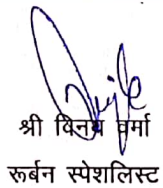 श्री विनय वर्मा
रूर्बन स्पेशलिस्ट